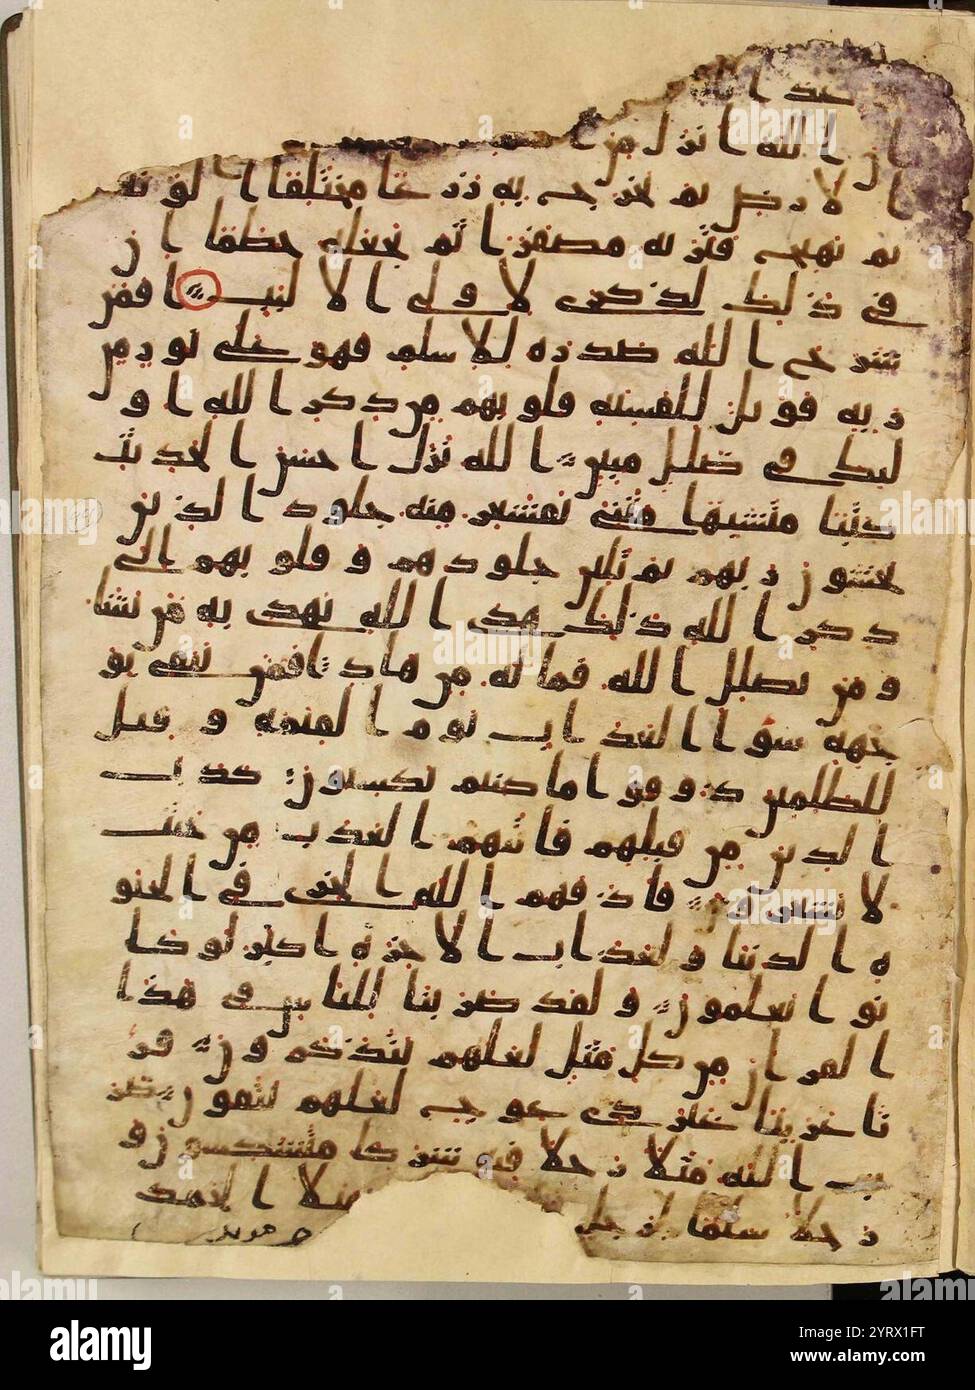 ن الله انزل من
الارض ثم يخرج به زرعا مختلفا الونه
ثم يهيج فتريه مصفرا ثم يجعله حطما ان
في ذلك لذكرى لاولي الالبب افمن
شرح الله صدره للاسلم فهو على نور من
ربه فويل للقسيه قلوبهم من ذكر الله او
ليك في ضلل مبين الله نزل احسن الحديث
كتبا متشبها مثني تقشعر منه جلود الذين
يخشون ربهم ثم تلين جلودهم وقلوبهم الى
ذكر الله ذلك هدى الله يهدي به من يشا
ومن يضلل الله فما له من هاد افمن يتقي بو
جهه سوا العذاب يوم القيمه وقيل
للظلمين ذوقوا ما كنتم تكسبون كذب
الذين من قبلهم فاتيهم العذب من حيث
لا يشعرون فاذقهم الله الخزي في الحيو
ه الدنيا ولعذاب الاخره اكبر لو كا
نوا يعلمون ولقد ضربنا للناس في هذا
القران من كل مثل لعلهم يتذكرون قر
انا عربيا غير ذي عوج لعلهم يتقون ضر
ب الله مثلا رجلا فيه شركا متشكسون و
رجلا سلما لرجل مثلا الحمد
alamy
Image ID: 2YRX1FT
www.alamy.com